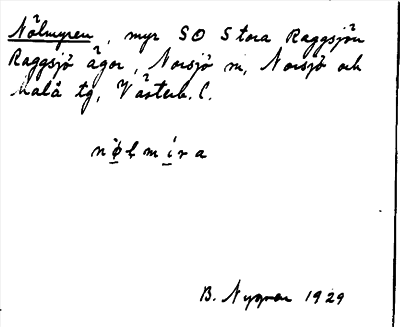 Nölmyren, myr SO Stora Raggsjön
Raggsjö ägor, Norsjö sn, Norsjö och
Malå tg, Västerb. l.
nø̠lmi̠ra
B. Nygren 1929